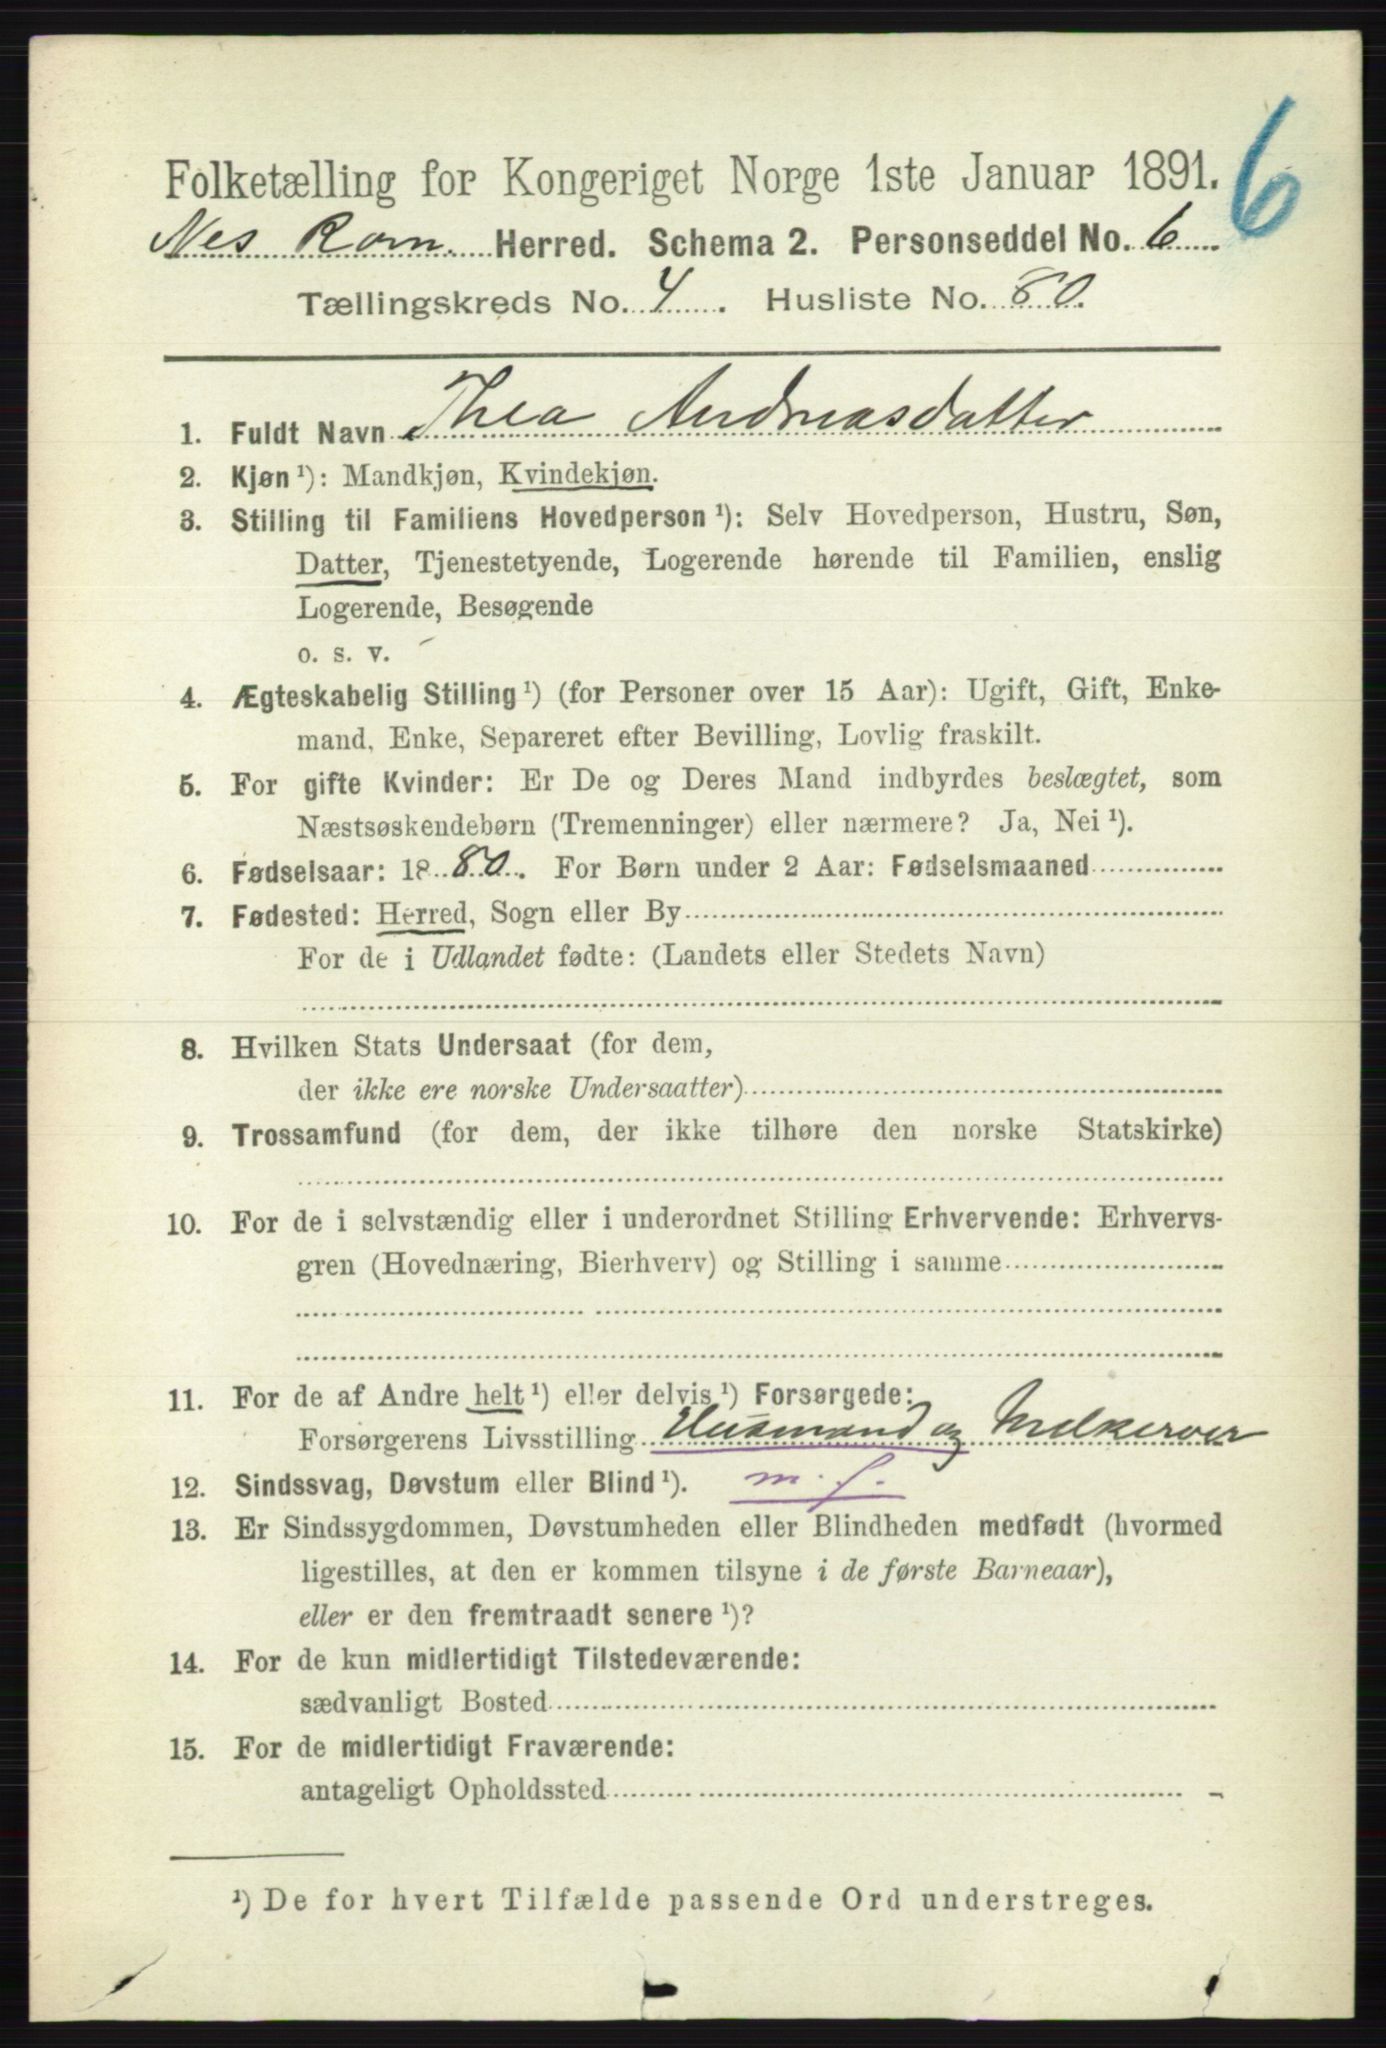 6
Folketælling for Kongeriget Norge 1ste Januar 1891.
Nes Rom. Herred. Schema 2. Personseddel No. 6
Tællingskreds No. 4. Husliste No. 80.
1. Fuldt Navn Thea Andreasdatter
2. Kjøn ¹): Mandkjøn, Kvindekjøn.
3. Stilling til Familiens Hovedperson ¹): Selv Hovedperson, Hustru, Søn,
Datter, Tjenestetyende, Logerende hørende til Familien, enslig
Logerende, Besøgende
o. s. v.
4. Ægteskabelig Stilling ¹) (for Personer over 15 Aar): Ugift, Gift, Enke-
mand, Enke, Separeret efter Bevilling, Lovlig fraskilt.
5. For gifte Kvinder: Er De og Deres Mand indbyrdes beslægtet, som
Næstsøskendebørn (Tremenninger) eller nærmere? Ja, Nei ¹).
6. Fødselsaar: 1880. For Børn under 2 Aar: Fødselsmaaned
7. Fødested: Herred, Sogn eller By
For de i Udlandet fødte: (Landets eller Stedets Navn)
8. Hvilken Stats Undersaat (for dem,
der ikke ere norske Undersaatter)
9. Trossamfund (for dem, der ikke tilhøre den norske Statskirke)
10. For de i selvstændig eller i underordnet Stilling Erhvervende: Erhvervs-
gren (Hovednæring, Bierhverv) og Stilling i samme
11. For de af Andre helt ¹) eller delvis ¹) Forsørgede:
Forsørgerens Livsstilling Husmand og Melkerver
12. Sindssvag, Døvstum eller Blind ¹). m. f.
13. Er Sindssygdommen, Døvstumheden eller Blindheden medfødt (hvormed
ligestilles, at den er kommen tilsyne i de første Barneaar),
eller er den fremtraadt senere ¹)?
14. For de kun midlertidigt Tilstedeværende:
sædvanligt Bosted
15. For de midlertidigt Fraværende:
antageligt Opholdssted
¹) De for hvert Tilfælde passende Ord understreges.